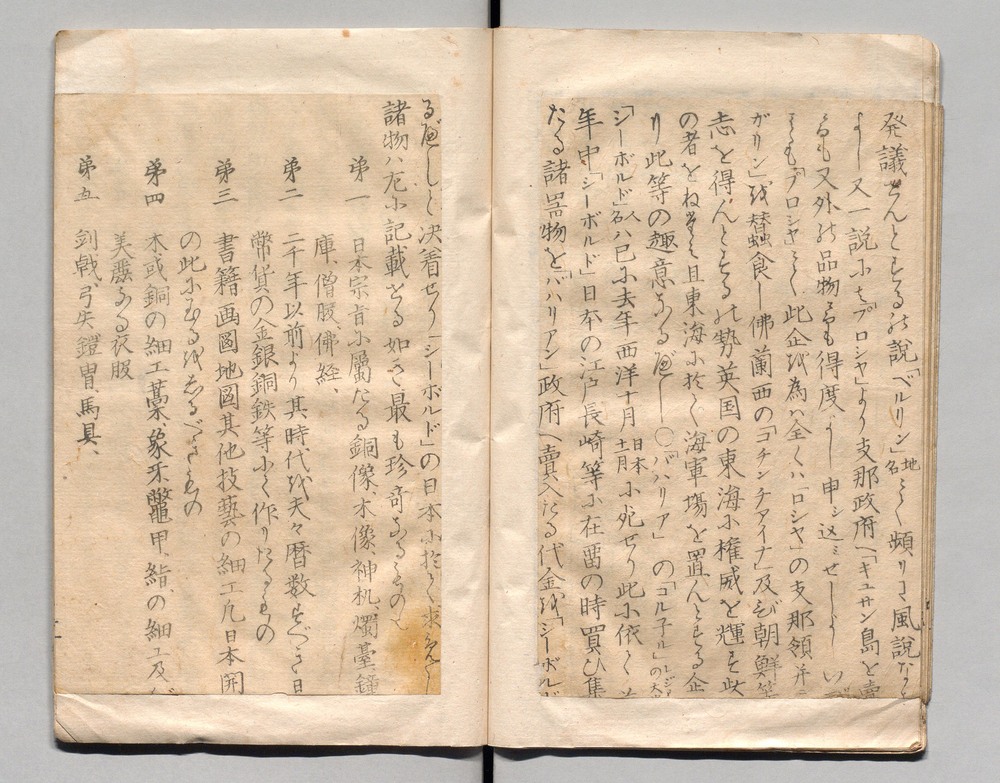 発議せんとする説「ベルリン」地名
よし又一説に「プロシヤ」より支那政府へ「キユサン島を
るも又外の品物にても得度よし申シ込ミせしよし
とも「プロシヤ」にて此企を為ハ全く「ロシヤ」の支那領并ニ
ガリン」を蚕食し佛蘭西の「コチンチアイナ」及び朝鮮等
志を得んとするの勢英国の東海に権威を輝を
の者をねたミ且東海に於て海軍場を置んとする企
り此等の趣意なるべし〇「ババリア」の「コル子ル」
「シーボルド」人名ハ已に去年西洋十月日本十一月に死せり此に依て
年中「シーボルド」日本の江戸長崎等に在留の時買ひ集
たる諸器物を「バハリアン」政府へ賣入たる代金を「シーボル
るべしと決着せり「シーボルド」の日本に於て求
諸物ハ左に記載する如き最も珍奇なるもの
第一 日本宗旨に屬たる銅像、木像、神机、燭臺、鐘
庫、僧服、佛経、
第二 二千年以前より其時代を天々暦数すべき日
幣貨の金銀銅鉄等にて作りたるもの
第三 書籍画図地図其他技藝の細工凡日本開
の此に至るをしるべきもの
第四 木或銅の細工藁、象牙、鼈甲、鮨の細工及
美麗なる衣服
第五 釼戟、弓矢、鎧冑、馬具、